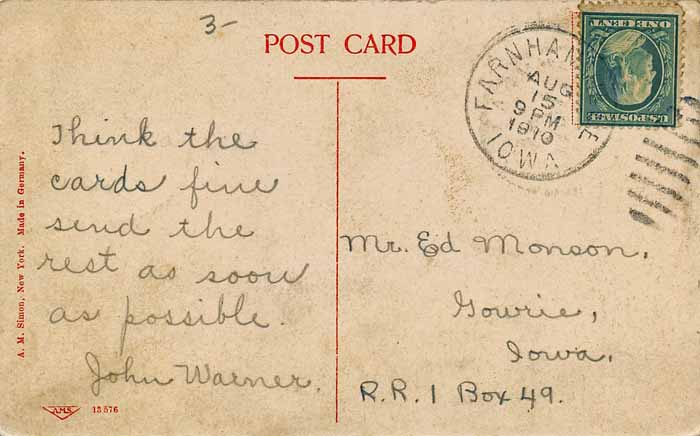 3-
POST CARD
FARNHAM
AUG
15
9 PM
1910
IOWA
ONE CENT
U.S. POSTAGE
Think the
cards fine
send the
rest as soon
as possible.
John Warner.
Mr. Ed Monson,
Gowrie,
Iowa,
R.R. 1 Box 49.
A. M. Simon, New York. Made in Germany.
A.M.S.
13576